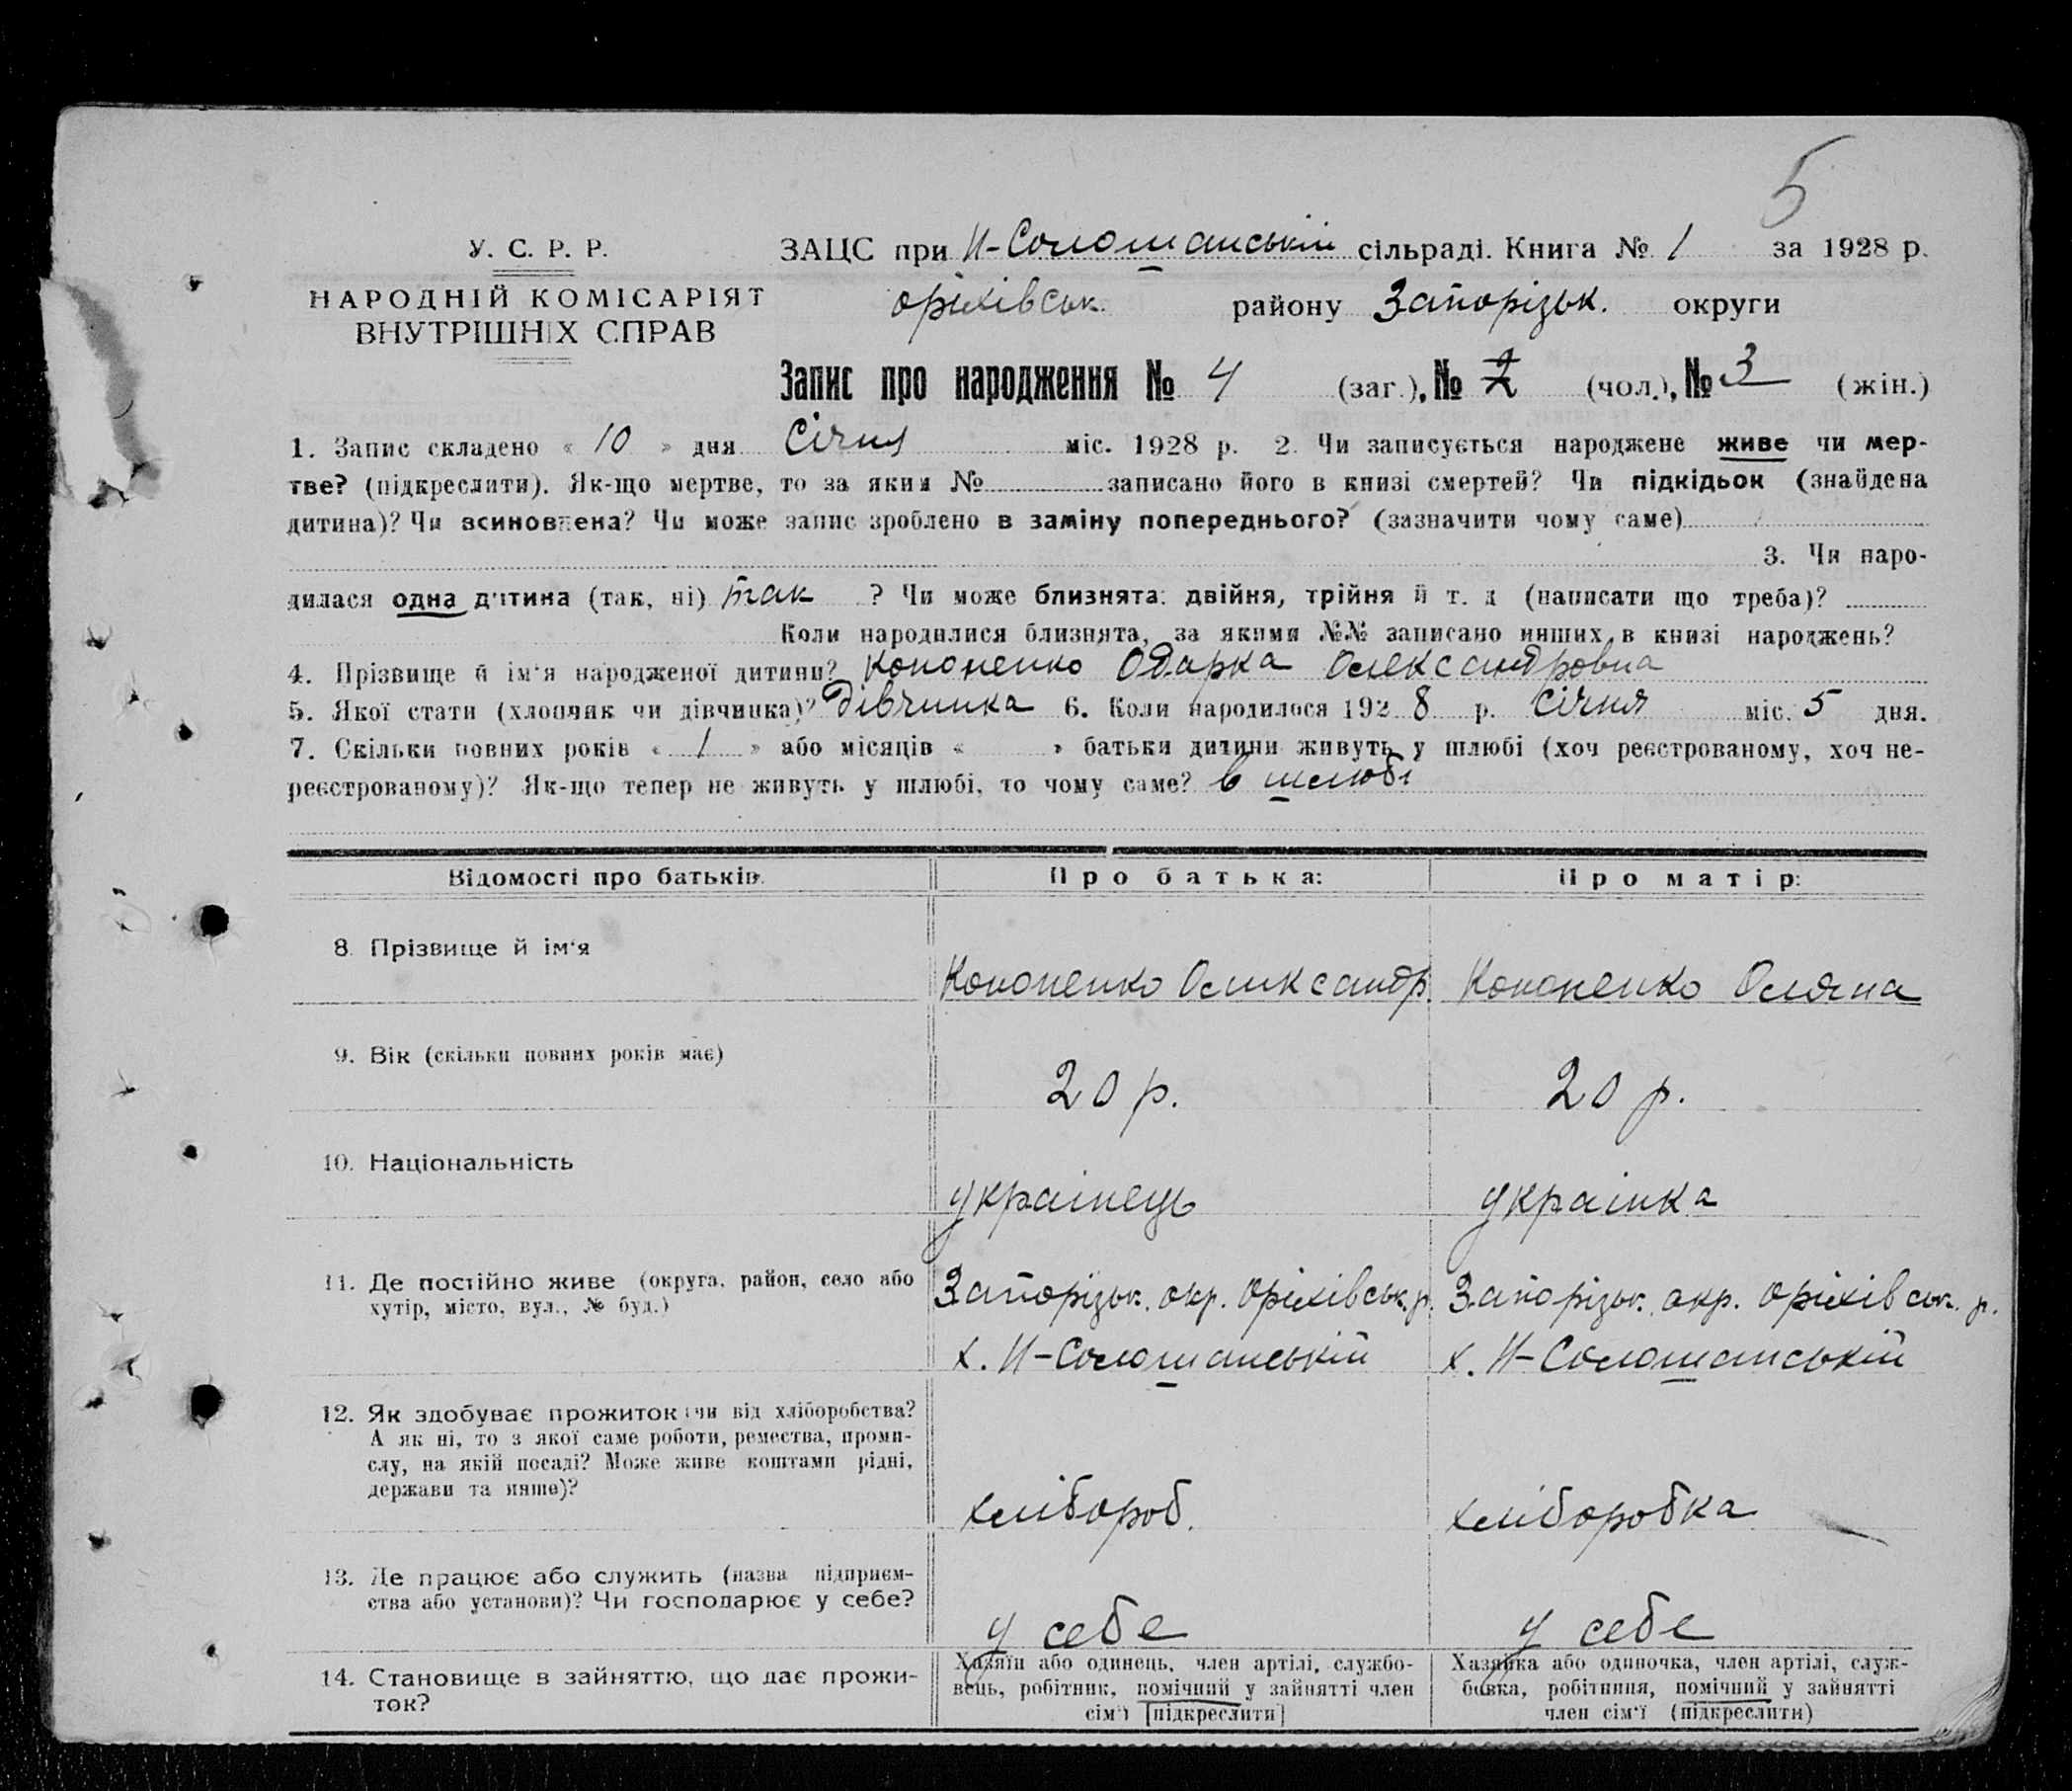 5
У. С. Р. Р.
НАРОДНІЙ КОМІСАРІЯТ
ВНУТРІШНІХ СПРАВ
ЗАЦС при Н-Солошанській сільраді. Книга № 1 за 1928 р.
Оріхівськ. району Запорізьк. округи
Запис про народження № 4 (заг.), № 2 (чол.), № 3 (жін.)
1. Запис складено « 10 » дня Січня міс. 1928 р. 2. Чи записується народжене живе чи мер-
тве? (підкреслити). Як-що мертве, то за яким № записано його в книзі смертей? Чи підкідьок (знайдена
дитина)? Чи всиновлена? Чи може запис зроблено в заміну попереднього? (зазначити чому саме)
3. Чи наро-
дилася одна дитина (так, ні) так ? Чи може близнята: двійня, трійня й т. д (написати що треба)?
Коли народилися близнята, за якими №№ записано инших в книзі народжень?
4. Прізвище й ім'я народженої дитини? Кононенко Одарка Олександровна
5. Якої стати (хлопчик чи дівчинка)? Дівчинка 6. Коли народилося 1928 р. Січня міс. 5 дня.
7. Скільки повних років « 1 » або місяців « » батьки дитини живуть у шлюбі (хоч реєстрованому, хоч не-
реєстрованому)? Як-що тепер не живуть у шлюбі, то чому саме? в шлюбі
Відомості про батьків. Про батька: Про матір:
8. Прізвище й ім'я Кононенко Олександр. Кононенко Оляна
9. Вік (скільки повних років має) 20 р. 20 р.
10. Національність українець українка
11. Де постійно живе (округа, район, село або
хутір, місто, вул., № буд.)
Запорізьк. окр. Оріхівськ. р. Запорізьк. окр. Оріхівськ. р.
х. Н-Солошанській х. Н-Солошанській
12. Як здобуває прожиток (чи від хліборобства?
А як ні, то з якої саме роботи, ремества, проми-
слу, на якій посаді? Може живе коштами рідні,
держави та инше)?
хлібороб. хліборобка
13. Де працює або служить (назва підприєм-
ства або установи)? Чи господарює у себе?
у себе у себе
14. Становище в зайняттю, що дає прожи-
ток?
Хазяїн або одинець, член артілі, службо-
вець, робітник, помічний у зайнятті член
сім'ї [підкреслити]
Хазяйка або одиночка, член артілі, служ-
бовка, робітниця, помічний у зайнятті
член сім'ї (підкреслити)